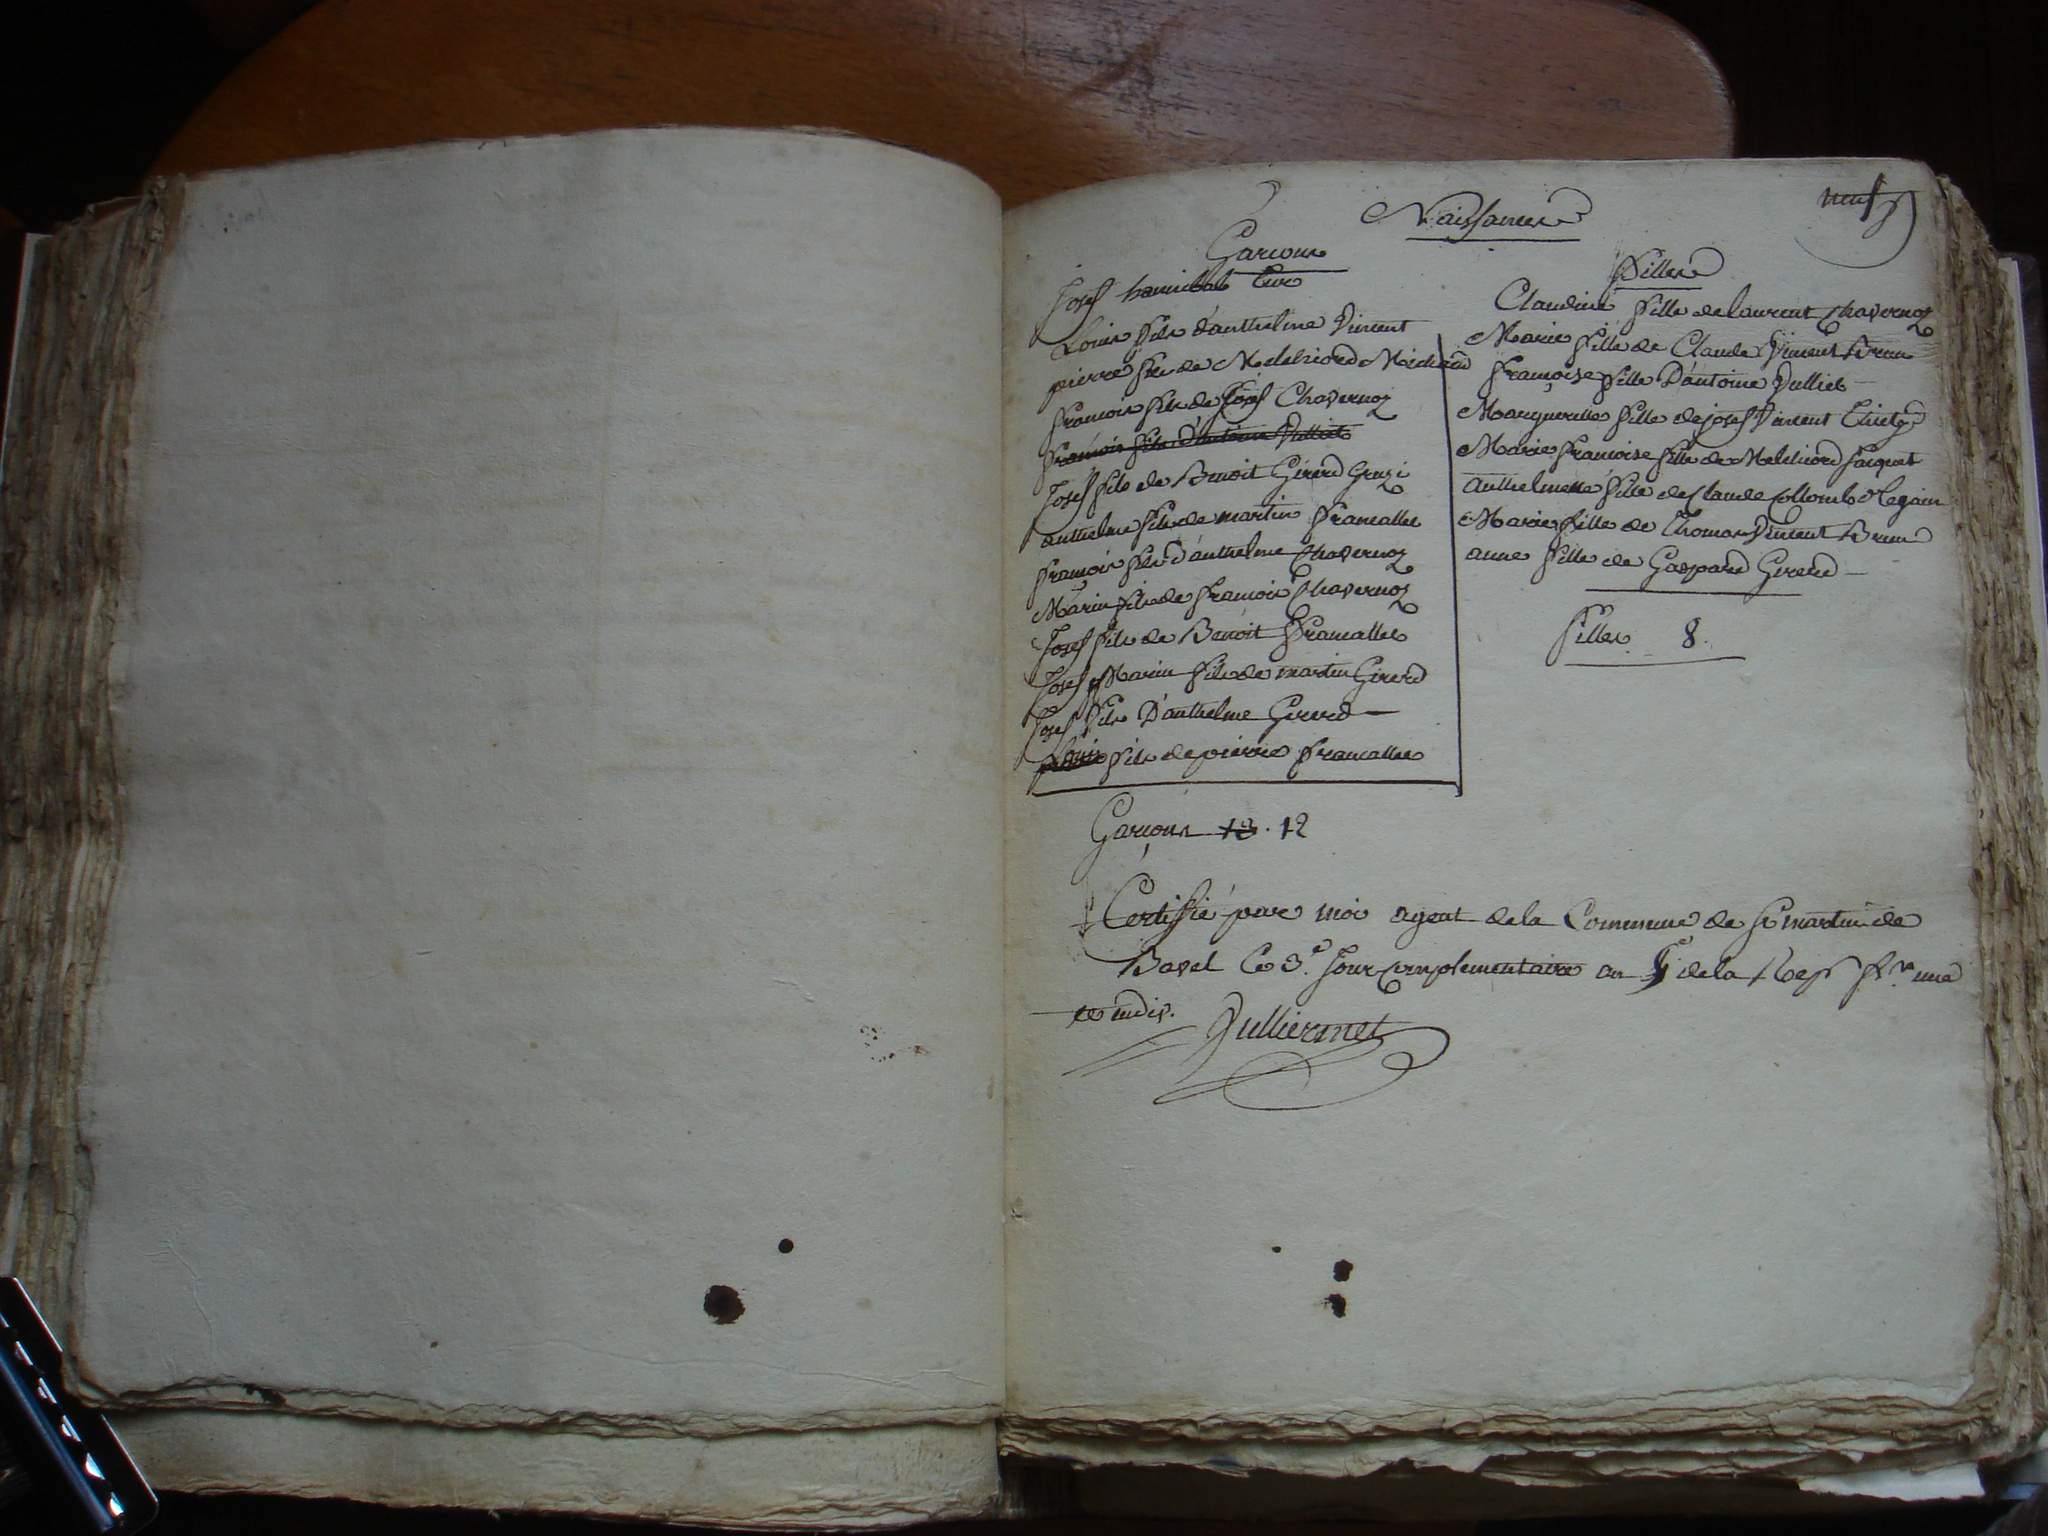 neuf
Naissances
Garcons
Josef hannibal Cure
Louis fils d'anthelme Vincent
pierre fils de Melchiord Michaud
francois fils de Josef Chavernoz
francois fils d'antoine Vulliet
Josef fils de Benoit Girerd
anthelme fils de martin francallet
françois fils d'anthelme Chavernoz
Marin fils de francois Chavernoz
Josef fils de Benoit francallet
Josef Marin fils de martin Girerd
Josef fils D'anthelme Girerd
Louis fils de pierre francallet
Garçons 13. 12
filles
Claudine fille de laurent Chavernoz
Marie fille de Claude Vincent brun
françoise fille D'antoine Vulliet
Margueritte fille de josef Vincent
Marie francoise fille de Melchiord
anthelmette fille de Claude Collomb
Marie fille de Thomas Vincent brun
anne fille de Gaspard Girerd
filles 8.
Certiffié par moi agent de la Commune de St martin de
Bavel Ce 3.e Jour Complementaire an de la Rep fr.se une
et indiv.
Julliermet